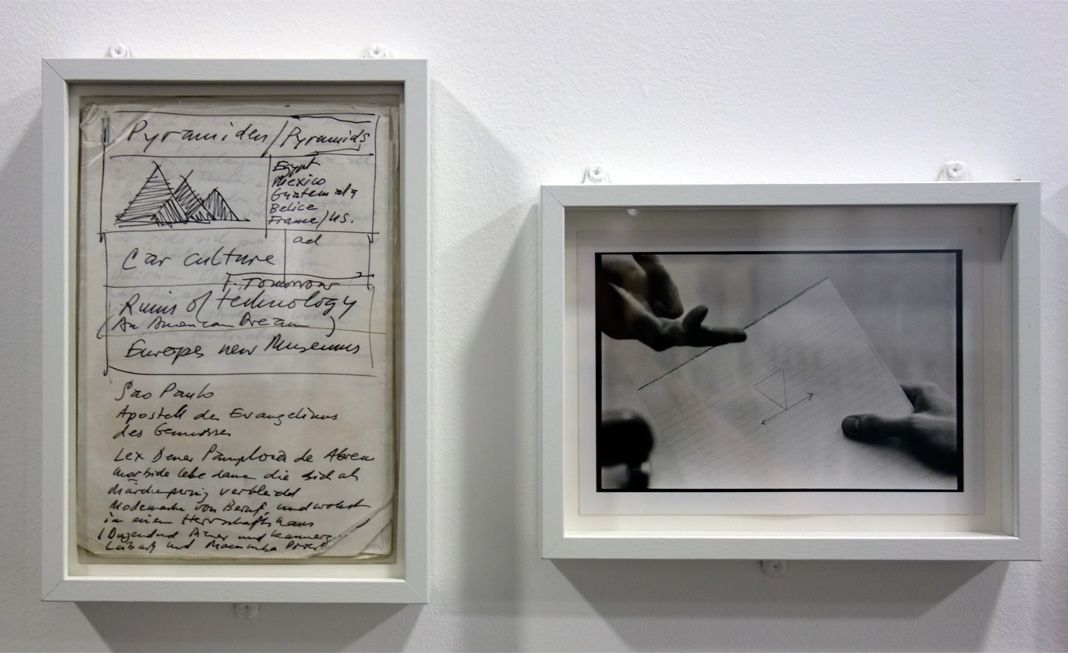 Pyramiden/Pyramids
Egypt
Mexico
Guatemala
Belice
France/US.
ad
Car culture
F. Tomorrow
Ruins of technology
(An American Dream)
Europes new Museums
Sao Paulo
Apostell des Evangeliums
des Genusses
Lex Dener Pamplona de Abreu
morbide lebe dame die sich als
märchenprinz verkleidet
Modemacher von Beruf, und wohnt
in einem Herrschaftshaus
(Dutzend Diener und Kammer
und Macumba Priest